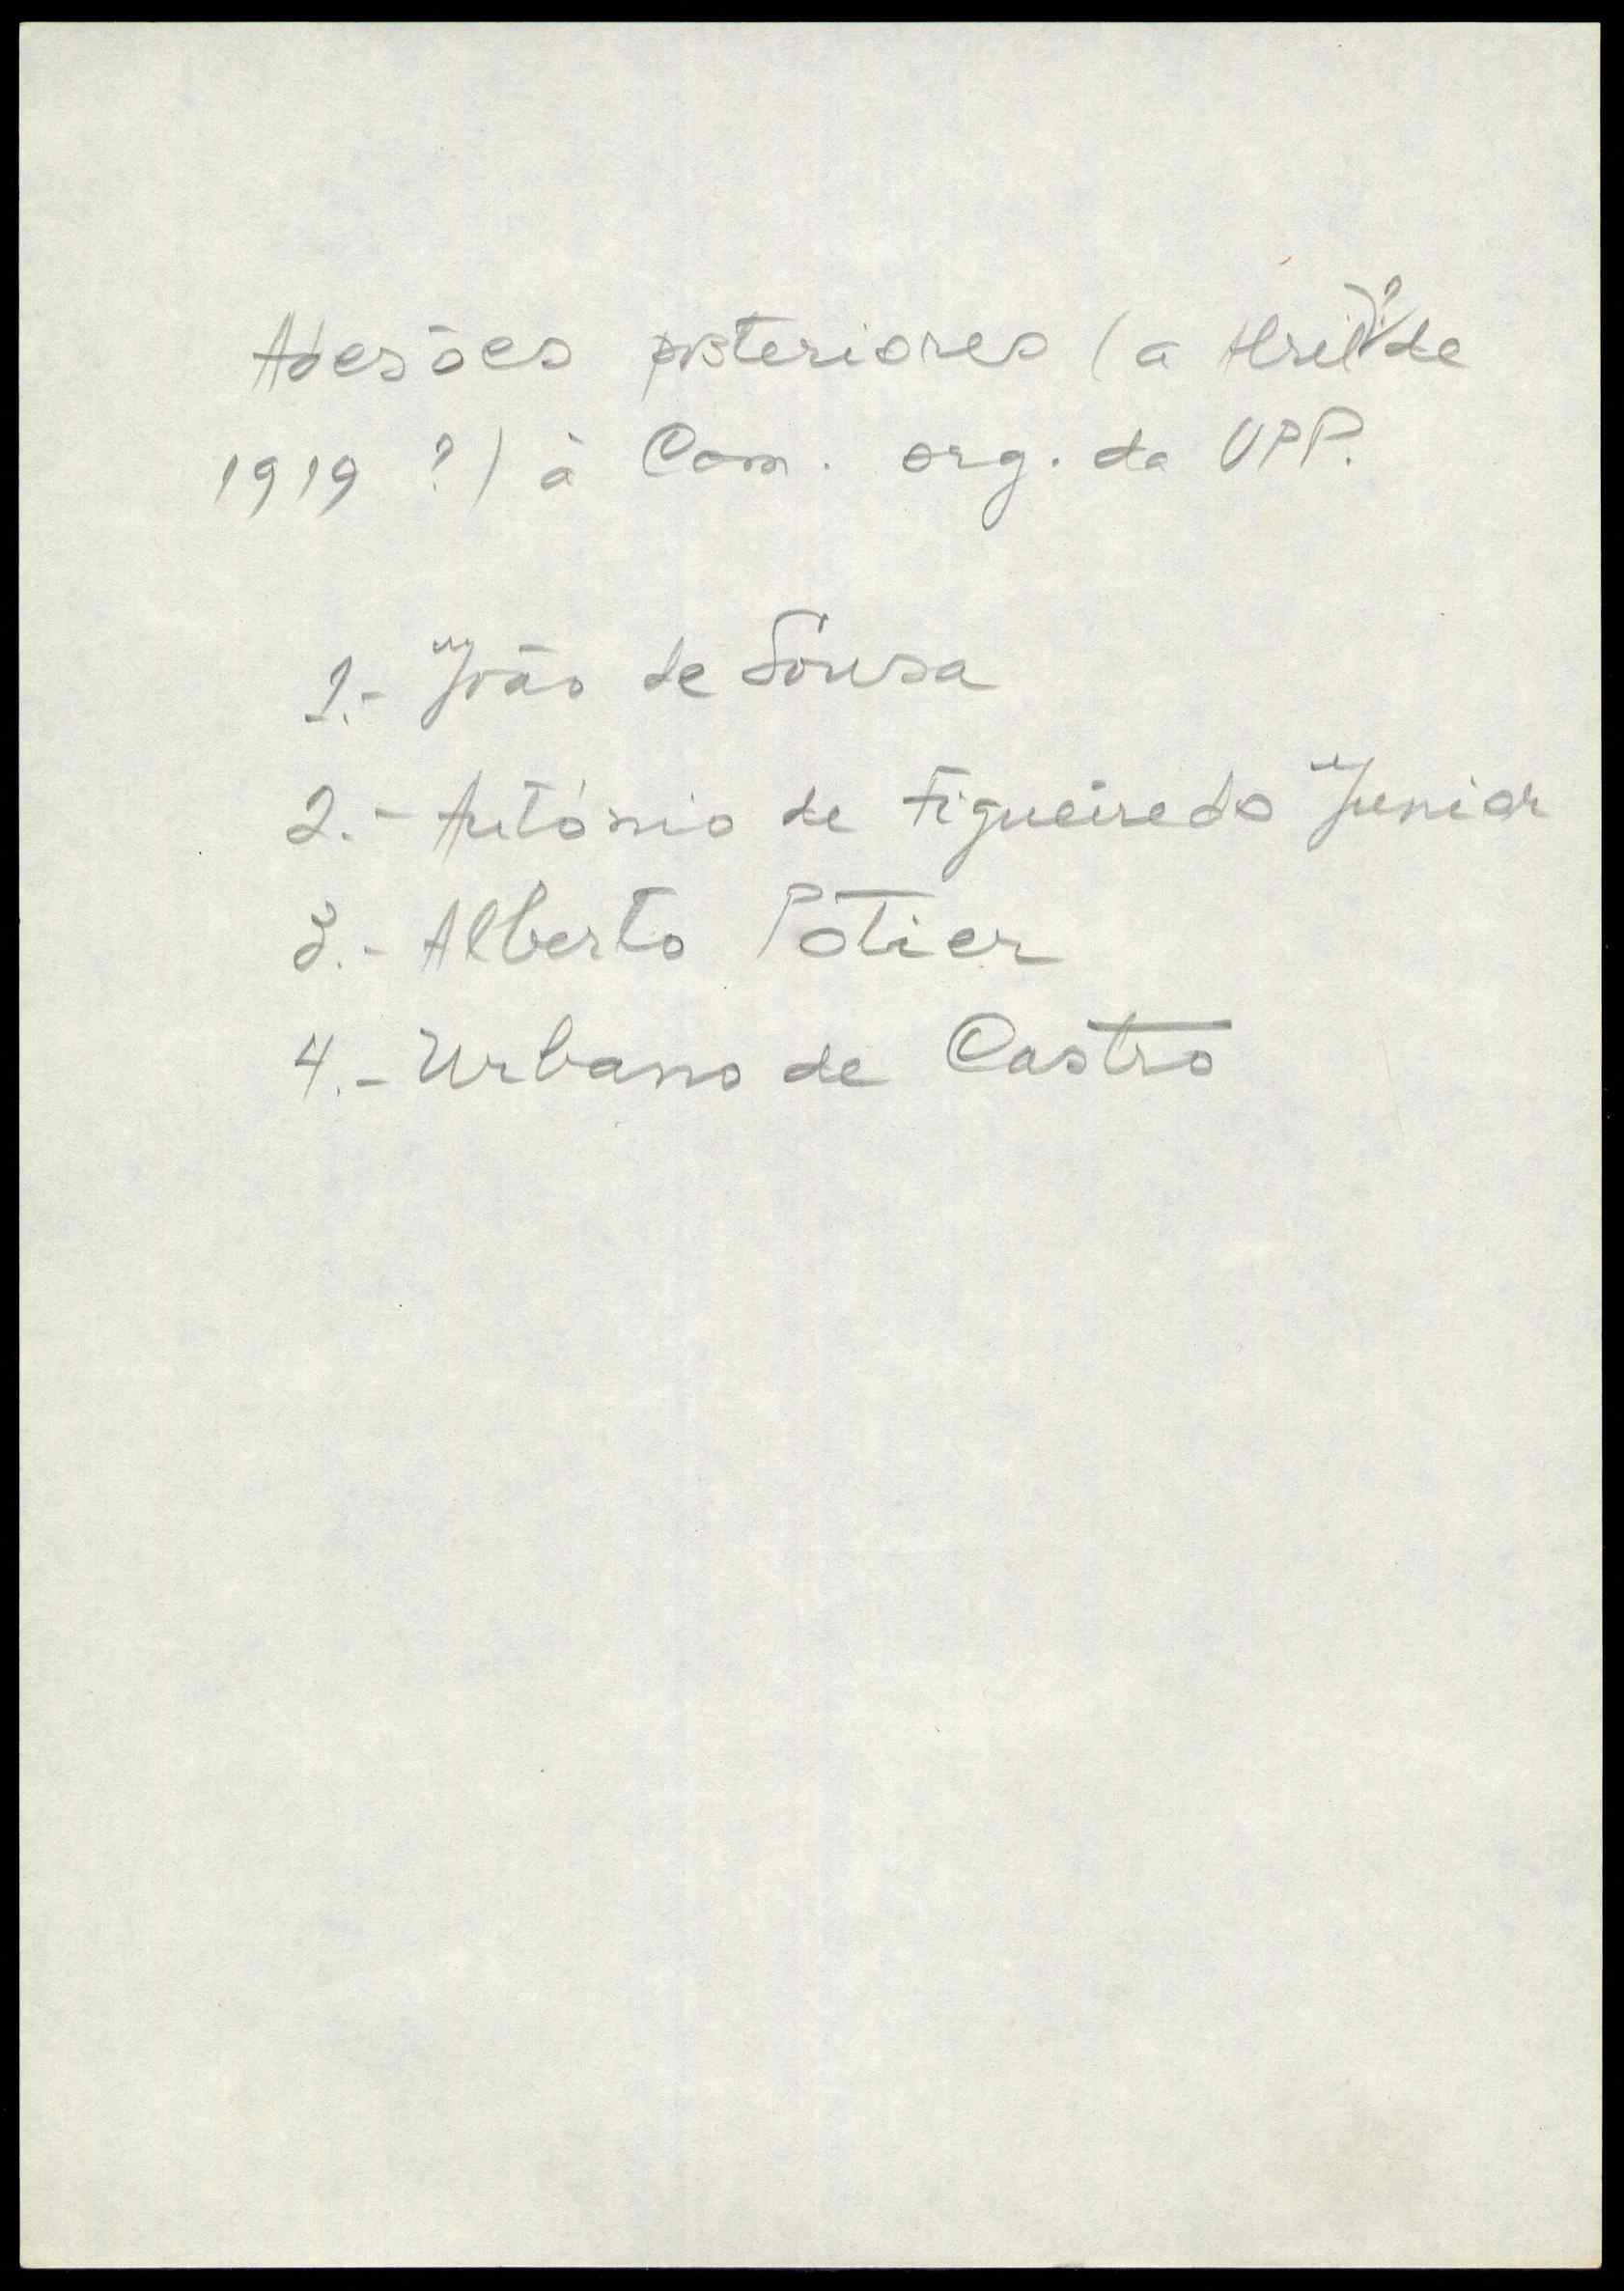 Adesões posteriores (a Abril)? de
1919 ?) à Com. org. da UPP.
1.- João de Sousa
2.- António de Figueiredo Junior
3.- Alberto Potier
4.- Urbano de Castro